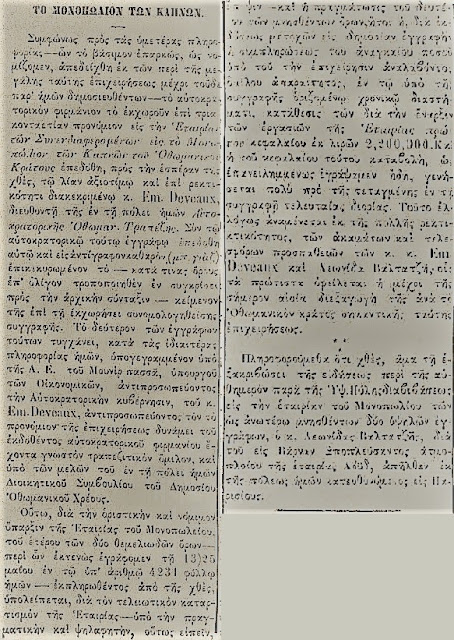 ΤΟ ΜΟΝΟΠΩΛΙΟΝ ΤΩΝ ΚΑΠΝΩΝ.
Συμφώνως πρὸς τὰς ἡμετέρας πληρο-
φορίας—ὧν τὸ βάσιμον ἐπαρκῶς, ὡς νο-
μίζομεν, ἀπεδείχθη ἐκ τῶν περὶ τῆς με-
γάλης ταύτης ἐπιχειρήσεως μέχρι τοῦδε
παρ' ἡμῶν δημοσιευθέντων—τὸ αὐτοκρα-
τορικὸν φιρμάνιον τὸ ἐκχωροῦν ἐπὶ τρια-
κονταετίαν προνόμιον εἰς τὴν Ἑταιρίαν
τῶν Συνενδιαφερομένων εἰς τὸ Μονο-
πώλιον τῶν Καπνῶν τοῦ Ὀθωμανικοῦ
Κράτους ἐπεδόθη, πρὸς τὴν ἑσπέραν τῆς
χθές, τῷ λίαν ἀξιοτίμῳ καὶ ἐπὶ ῥεκτι-
κότητι διακεκριμένῳ κ. Em. Deveaux,
διευθυντῇ τῆς ἐν τῇ πόλει ἡμῶν Αὐτο-
κρατορικῆς Ὀθωμαν. Τραπέζης. Σὺν τῷ
αὐτοκρατορικῷ τούτῳ ἐγγράφῳ ἐπεδόθη
αὐτῷ καὶ εἰς ἀντίγραφον καθαρὸν
ἐπικεκυρωμένον τὸ — κατά τινας ὅρους
ἐπ' ὀλίγον τροποποιηθὲν ἐν συγκρίσει
πρὸς τὴν ἀρχικὴν σύνταξιν — κείμενον
τῆς ἐπὶ τῇ ἐκχωρήσει συνομολογηθείσης
συγγραφῆς. Τὸ δεύτερον τῶν ἐγγράφων
τούτων τυγχάνει, κατὰ τὰς ἰδιαιτέρας
πληροφορίας ἡμῶν, ὑπογεγραμμένον ὑπὸ
τῆς Α. Ε. τοῦ Μουνὶρ πασσᾶ, ὑπουργοῦ
τῶν Οἰκονομικῶν, ἀντιπροσωπεύοντος
τὴν Αὐτοκρατορικὴν κυβέρνησιν, τοῦ κ.
Em. Deveaux, ἀντιπροσωπεύοντος τὸν τὸ
προνόμιον τῆς ἐπιχειρήσεως δυνάμει τοῦ
ἐκδοθέντος αὐτοκρατορικοῦ φιρμανίου ἔ-
χοντα γνωστὸν τραπεζιτικὸν ὅμιλον, καὶ
ὑπὸ τῶν μελῶν τοῦ ἐν τῇ πόλει ἡμῶν
Διοικητικοῦ Συμβουλίου τοῦ Δημοσίου
Ὀθωμανικοῦ Χρέους.
Οὕτω, διὰ τὴν ὁριστικὴν καὶ νόμιμον
ὕπαρξιν τῆς Ἑταιρίας τοῦ Μονοπωλείου,
τοῦ ἑτέρου τῶν δύο θεμελιωδῶν ὅρων—
περὶ ὧν ἐκτενῶς ἐγράφομεν τῇ 13)25
μαΐου ἐν τῷ ὑπ' ἀριθμῷ 4234 φύλλῳ
ἡμῶν — ἐκπληρωθέντος ἀπὸ τῆς χθές,
ὑπολείπεται, διὰ τὸν τελειωτικὸν καταρ-
τισμὸν τῆς Ἑταιρίας—ὑπὸ τὴν πραγ-
ματικὴν καὶ ψηλαφητήν, οὕτως εἰπεῖν,
ἔποψιν—καὶ ἡ πραγμάτωσις τοῦ δευτέ-
ρου τῶν μνησθέντων ὅρων, ἤτοι ἡ, διὰ ἐκ-
δόσεως μετοχῶν εἰς δημοσίαν ἐγγραφὴν
ἢ συμπληρώσεως τοῦ ἀναγκαίου ποσοῦ
ὑπὸ τοῦ τὴν ἐπιχείρησιν ἀναλαβόντος
ὁμίλου ἀπαραίτητος, ἐν τῷ ὑπὸ τῆς
συγγραφῆς ὁριζομένῳ χρονικῷ διαστή-
ματι, κατάθεσις τῶν διὰ τὴν ἔναρξιν
τῶν ἐργασιῶν τῆς Ἑταιρίας
κεφαλαίου ἐκ λιρῶν 2,200,000. Καὶ
ἡ τοῦ κεφαλαίου τούτου καταβολὴ, ὡς
ἐπανειλημμένως ἐγράψαμεν ἤδη, γενή-
σεται πολὺ πρὸ τῆς τεταγμένης ἐν τῇ
συγγραφῇ τελευταίας διορίας. Τοῦτο εὐ-
λόγως ἀναμένεται ἐκ τῆς πολλῆς ῥεκτι-
κότητος, τῶν ἀκαμάτων καὶ τελε-
σφόρων προσπαθειῶν τῶν κ. κ. Em.
Deveaux καὶ Λεωνίδα Βαλτατζῆ, οἷς
τὰ πρώτιστα ὀφείλεται ἡ μέχρι τῆς
σήμερον αἰσία διεξαγωγὴ τῆς ἀνὰ τὸ
Ὀθωμανικὸν κράτος σημαντικῆς ταύτης
ἐπιχειρήσεως.
* *
Πληροφορούμεθα ὅτι χθές, ἅμα τῇ ἐ-
ξακριβώσει τῆς εἰδήσεως περὶ τῆς αὐ-
θημερὸν παρὰ τῆς Ὑψ. Πύλης διαβιβάσεως
εἰς τὴν ἑταιρίαν τοῦ Μονοπωλίου τῶν
ὡς ἀνωτέρω μνησθέντων δύο ὑψηλῶν ἐγ-
γράφων, ὁ κ. Λεωνίδας Βαλτατζῆς, διὰ
τοῦ εἰς Βάρναν ἀποπλεύσαντος ἀτμο-
πλοίου τῆς ἑταιρίας Λόϋδ, ἀπῆλθεν ἐκ
τῆς πόλεως ἡμῶν κατευθυνόμενος εἰς Πα-
ρισίους.